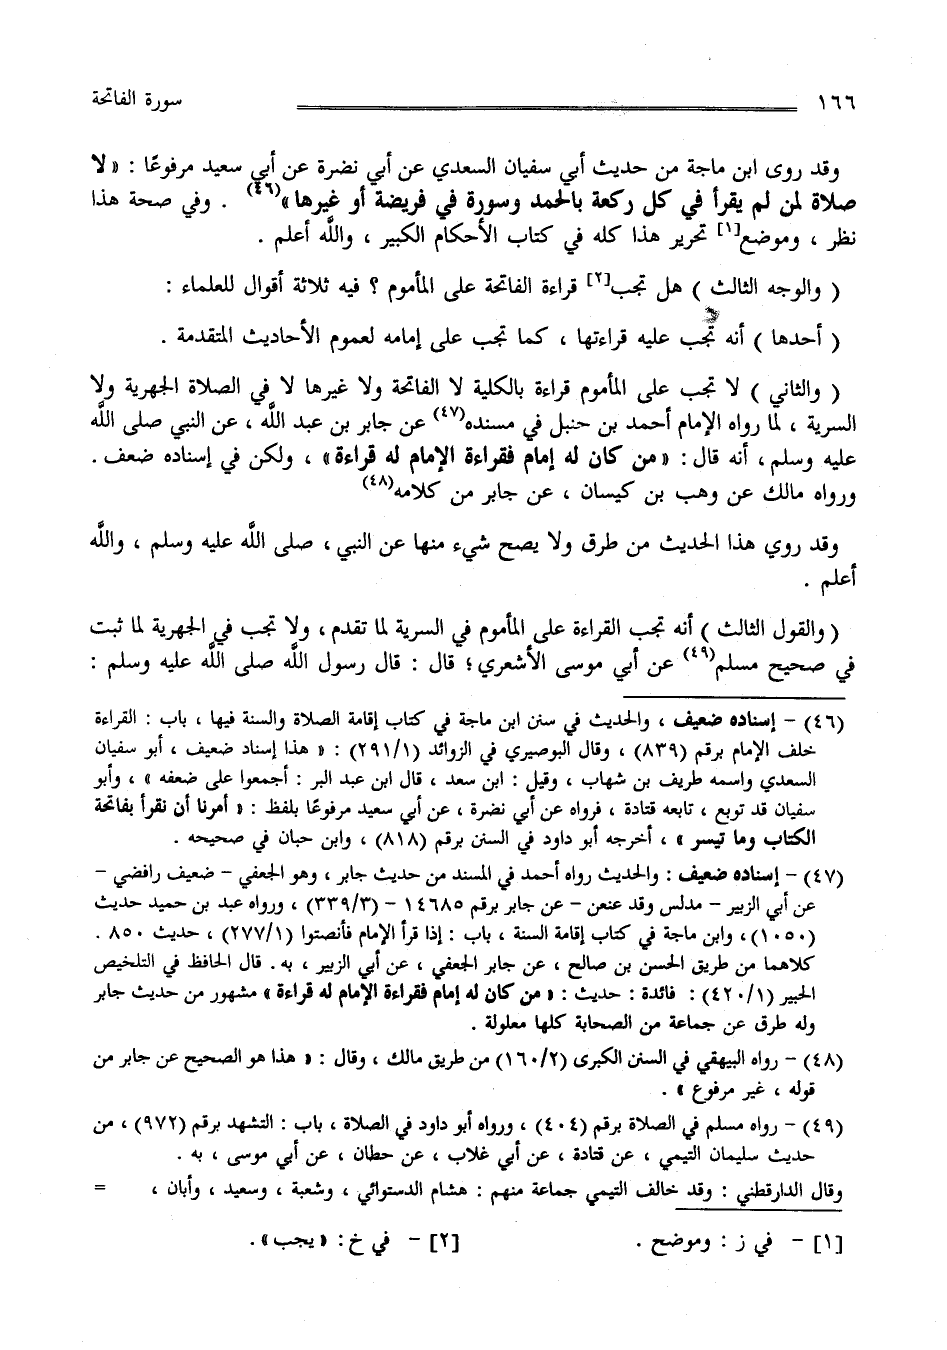 ١٦٦ سورة الفاتحة
وقد روى ابن ماجة من حديث أبي سفيان السعدي عن أبي نضرة عن أبي سعيد مرفوعًا : « لا
صلاة لمن لم يقرأ في كل ركعة بالحمد وسورة في فريضة أو غيرها »(٤٦) . وفي صحة هذا
نظر ، وموضع[١] تحرير هذا كله في كتاب الأحكام الكبير ، والله أعلم .
( والوجه الثالث ) هل تجب[٢] قراءة الفاتحة على المأموم ؟ فيه ثلاثة أقوال للعلماء :
( أحدها ) أنه تجب عليه قراءتها ، كما تجب على إمامه لعموم الأحاديث المتقدمة .
( والثاني ) لا تجب على المأموم قراءة بالكلية لا الفاتحة ولا غيرها لا في الصلاة الجهرية ولا
السرية ، لما رواه الإمام أحمد بن حنبل في مسنده(٤٧) عن جابر بن عبد الله ، عن النبي صلى الله
عليه وسلم ، أنه قال : « من كان له إمام فقراءة الإمام له قراءة » ، ولكن في إسناده ضعف .
ورواه مالك عن وهب بن كيسان ، عن جابر من كلامه(٤٨)
وقد روي هذا الحديث من طرق ولا يصح شيء منها عن النبي ، صلى الله عليه وسلم ، والله
أعلم .
( والقول الثالث ) أنه تجب القراءة على المأموم في السرية لما تقدم ، ولا تجب في الجهرية لما ثبت
في صحيح مسلم(٤٩) عن أبي موسى الأشعري ؛ قال : قال رسول الله صلى الله عليه وسلم :
(٤٦) – إسناده ضعيف ، والحديث في سنن ابن ماجة في كتاب إقامة الصلاة والسنة فيها ، باب : القراءة
خلف الإمام برقم (٨٣٩) ، وقال البوصيري في الزوائد (٢٩١/١) : « هذا إسناد ضعيف ، أبو سفيان
السعدي واسمه طريف بن شهاب ، وقيل : ابن سعد ، قال ابن عبد البر : أجمعوا على ضعفه » ، وأبو
سفيان قد توبع ، تابعه قتادة ، فرواه عن أبي نضرة ، عن أبي سعيد مرفوعًا بلفظ : « أمرنا أن نقرأ بفاتحة
الكتاب وما تيسر » ، أخرجه أبو داود في السنن برقم (٨١٨) ، وابن حبان في صحيحه .
(٤٧) – إسناده ضعيف : والحديث رواه أحمد في المسند من حديث جابر ، وهو الجعفي – ضعيف رافضي –
عن أبي الزبير – مدلس وقد عنعن – عن جابر برقم ١٤٦٨٥ – (٣٣٩/٣) ، ورواه عبد بن حميد حديث
(١٠٥٠) ، وابن ماجة في كتاب إقامة السنة ، باب : إذا قرأ الإمام فأنصتوا (٢٧٧/١) ، حديث ٨٥٠ .
كلاهما من طريق الحسن بن صالح ، عن جابر الجعفي ، عن أبي الزبير ، به . قال الحافظ في التلخيص
الحبير (٤٢٠/١) : فائدة : حديث : « من كان له إمام فقراءة الإمام له قراءة » مشهور من حديث جابر
وله طرق عن جماعة من الصحابة كلها معلولة .
(٤٨) – رواه البيهقي في السنن الكبرى (١٦٠/٢) من طريق مالك ، وقال : « هذا هو الصحيح عن جابر من
قوله ، غير مرفوع » .
(٤٩) – رواه مسلم في الصلاة برقم (٤٠٤) ، ورواه أبو داود في الصلاة ، باب : التشهد برقم (٩٧٢) ، من
حديث سليمان التيمي ، عن قتادة ، عن أبي غلاب ، عن حطان ، عن أبي موسى ، به .
وقال الدارقطني : وقد خالف التيمي جماعة منهم : هشام الدستوائي ، وشعبة ، وسعيد ، وأبان ، =
[١] – في ز : وموضح . [٢] – في خ : « يجب » .